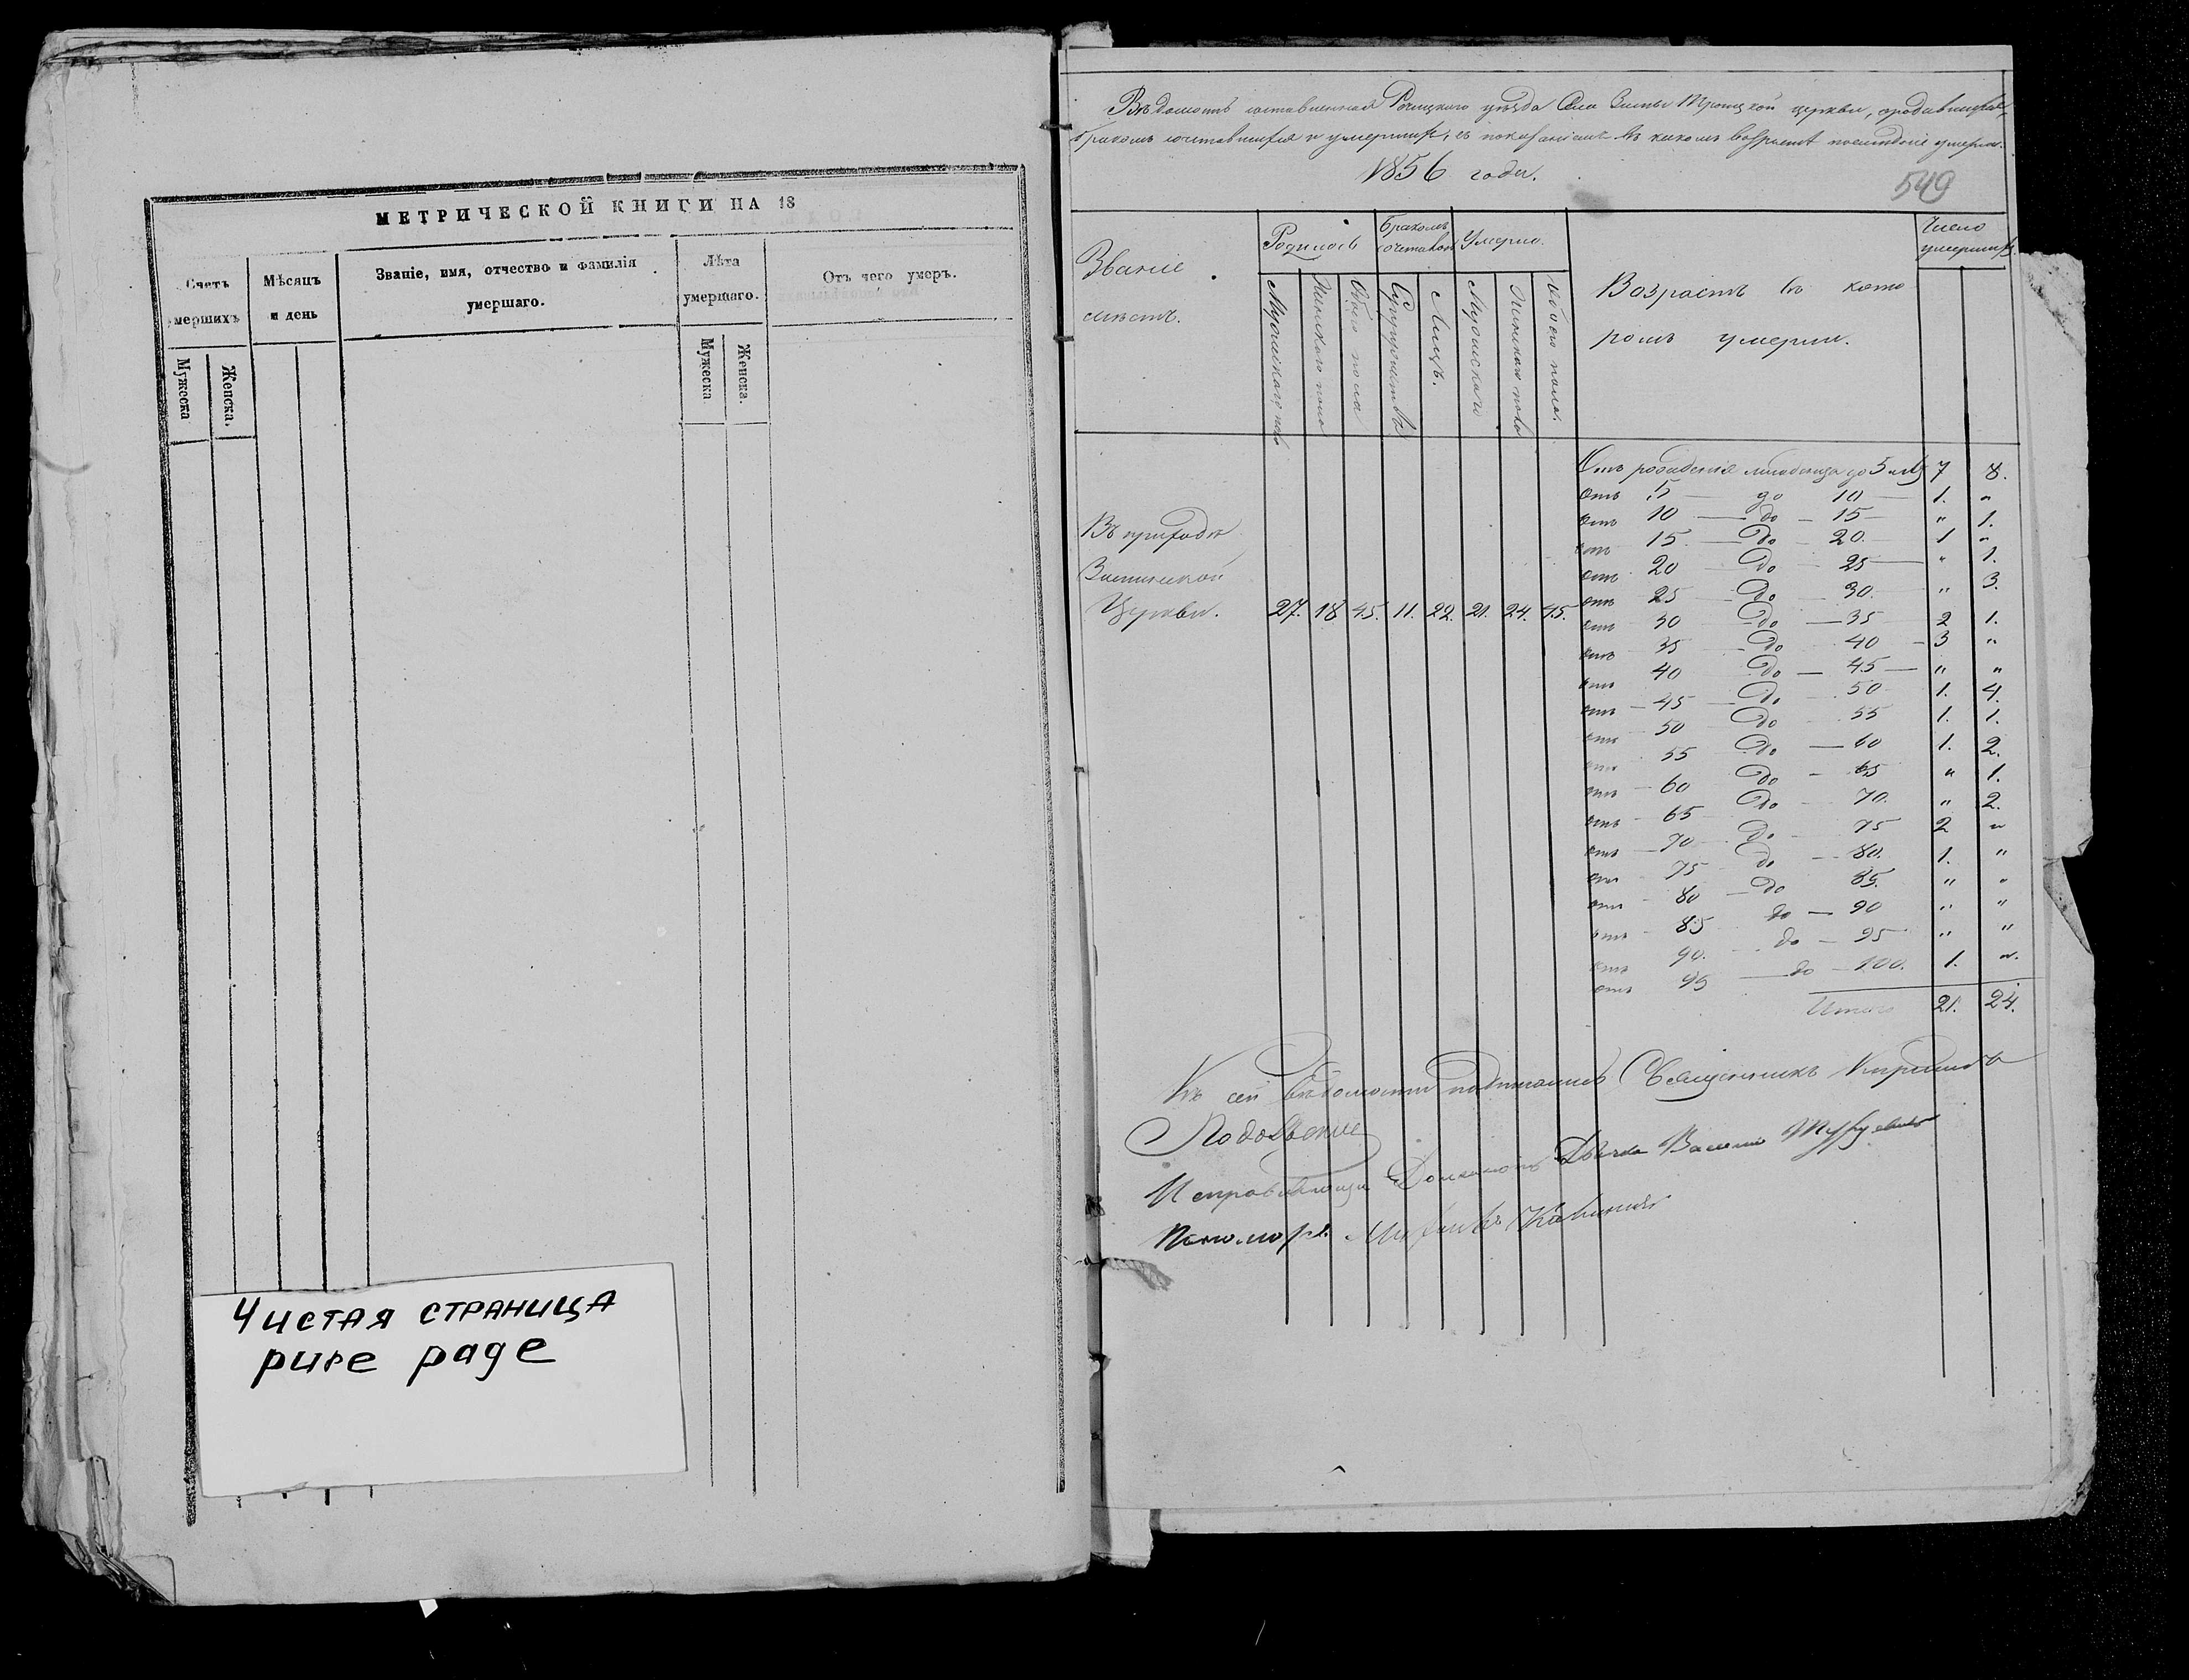 МЕТРИЧЕСКОЙ КНИГИ НА 18
Счетъ умершихъ
Мѣсяцъ и день
Званіе, имя, отчество и фамилія
умершаго.
Лѣта
умершаго.
Отъ чего умеръ.
Мужеска
Женска.
Мужеска
Женска.
Чистая страница
pure page
Вѣдомость составленная Рѣчицкаго уѣзда Села Троицкой церкви, о родившихся,
бракомъ сочетавшихся и умершихъ, съ показаніемъ въ какомъ возрастѣ послѣдніе умерли.
1856 года.
549
Званіе
мѣстъ.
Родилось
Бракомъ
сочетался
Умерло.
Возрастъ въ кото
ромъ умерли.
Число
умершихъ
Мужескаго пола
Женскаго пола
Обоего пола
Супружествъ
Лицъ.
Мужескаго
Женскаго пола
Обоего пола.
Въ приходѣ
Церкви. 27. 18 45. 11. 22. 21. 24. 45.
Отъ рожденія младенца до 5 лѣтъ 7 8.
отъ 5 до 10 1. "
отъ 10 до 15 " 1.
отъ 15 до 20. 1 "
отъ 20 до 25 " 1.
отъ 25 до 30. " 3.
отъ 30 до 35 2 1.
отъ 35 до 40 3 "
отъ 40 до 45 " "
отъ 45 до 50 1. 4.
отъ 50 до 55 1. 1.
отъ 55 до 60 1. 2.
отъ 60 до 65 " 1.
отъ 65 до 70. " 2.
отъ 70 до 75 2 "
отъ 75 до 80. 1. "
отъ 80 до 85. " "
отъ 85 до 90 " "
отъ 90. до 95 " "
отъ 95 до 100. 1. ".
Итого 21. 24.
Къ сей вѣдомости подписались Священникъ Кириллъ
Исправляющій Должность Дьячка Василій
Пономарь